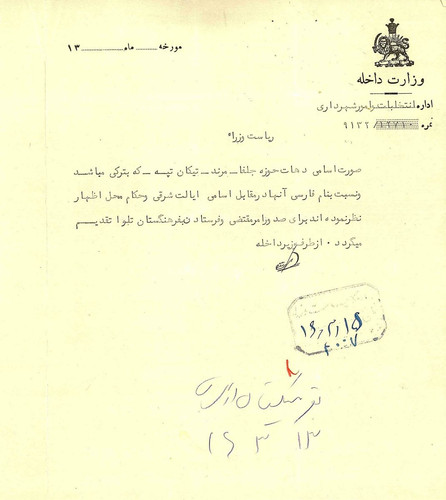 مورخه ــــ ماه ــــ ۱۳
وزارت داخله
اداره انتخابات و امور شهرداری
نمره ۱۲۷۱۰ / ۹۱۳۲
ریاست وزراء
صورت اسامی دهات حوزه جلفا ــ مرند ــ تیکان تپه ــ که بترکی میباشد
و نسبت بنام فارسی آنها در مقابل اسامی ایالت شرقی و حکام محل اظهار
نظر نموده اند برای صدور امر مقتضی و فرستادن بفرهنگستان تلوا تقدیم
میگردد ۰ از طرف وزیر داخله
۱۶/۳/۱۵
۴۰۰۷
۱۳ ۳ ۱۶